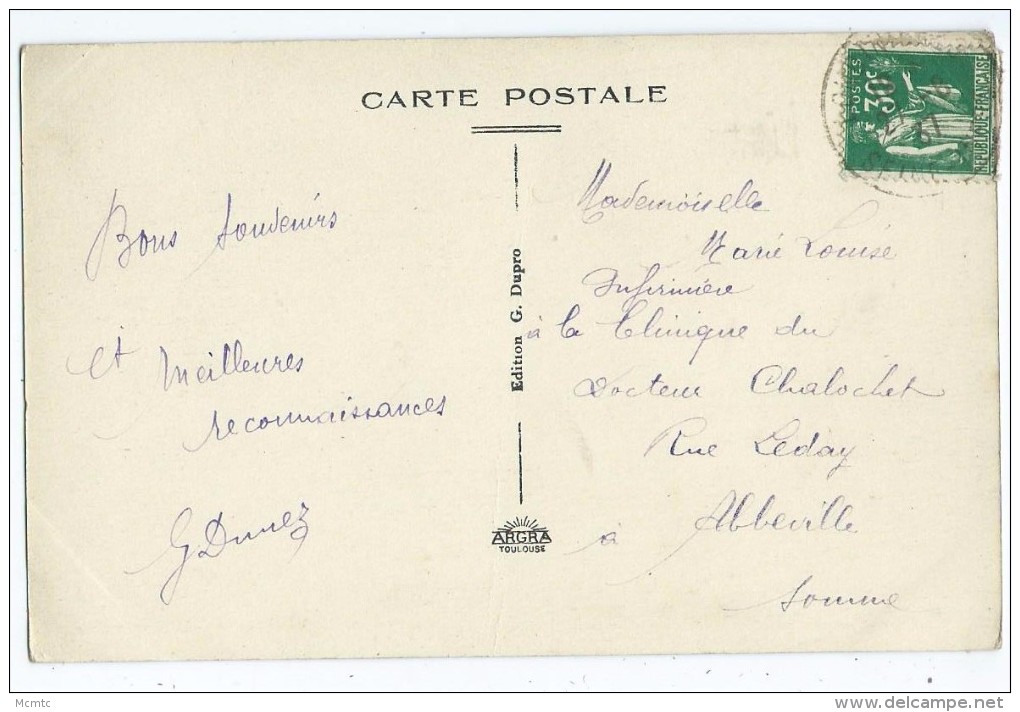 CARTE POSTALE
POSTES
30c
REPUBLIQUE FRANÇAISE
Bons souvenirs
et meilleures
reconnaissances
Edition G. Dupro
ARGRA
TOULOUSE
Mademoiselle
Marie Louise
Infirmière
à la Clinique du
Docteur Chalochet
Rue Leday
à Abbeville
Somme
Mcmtc
delcampe.net